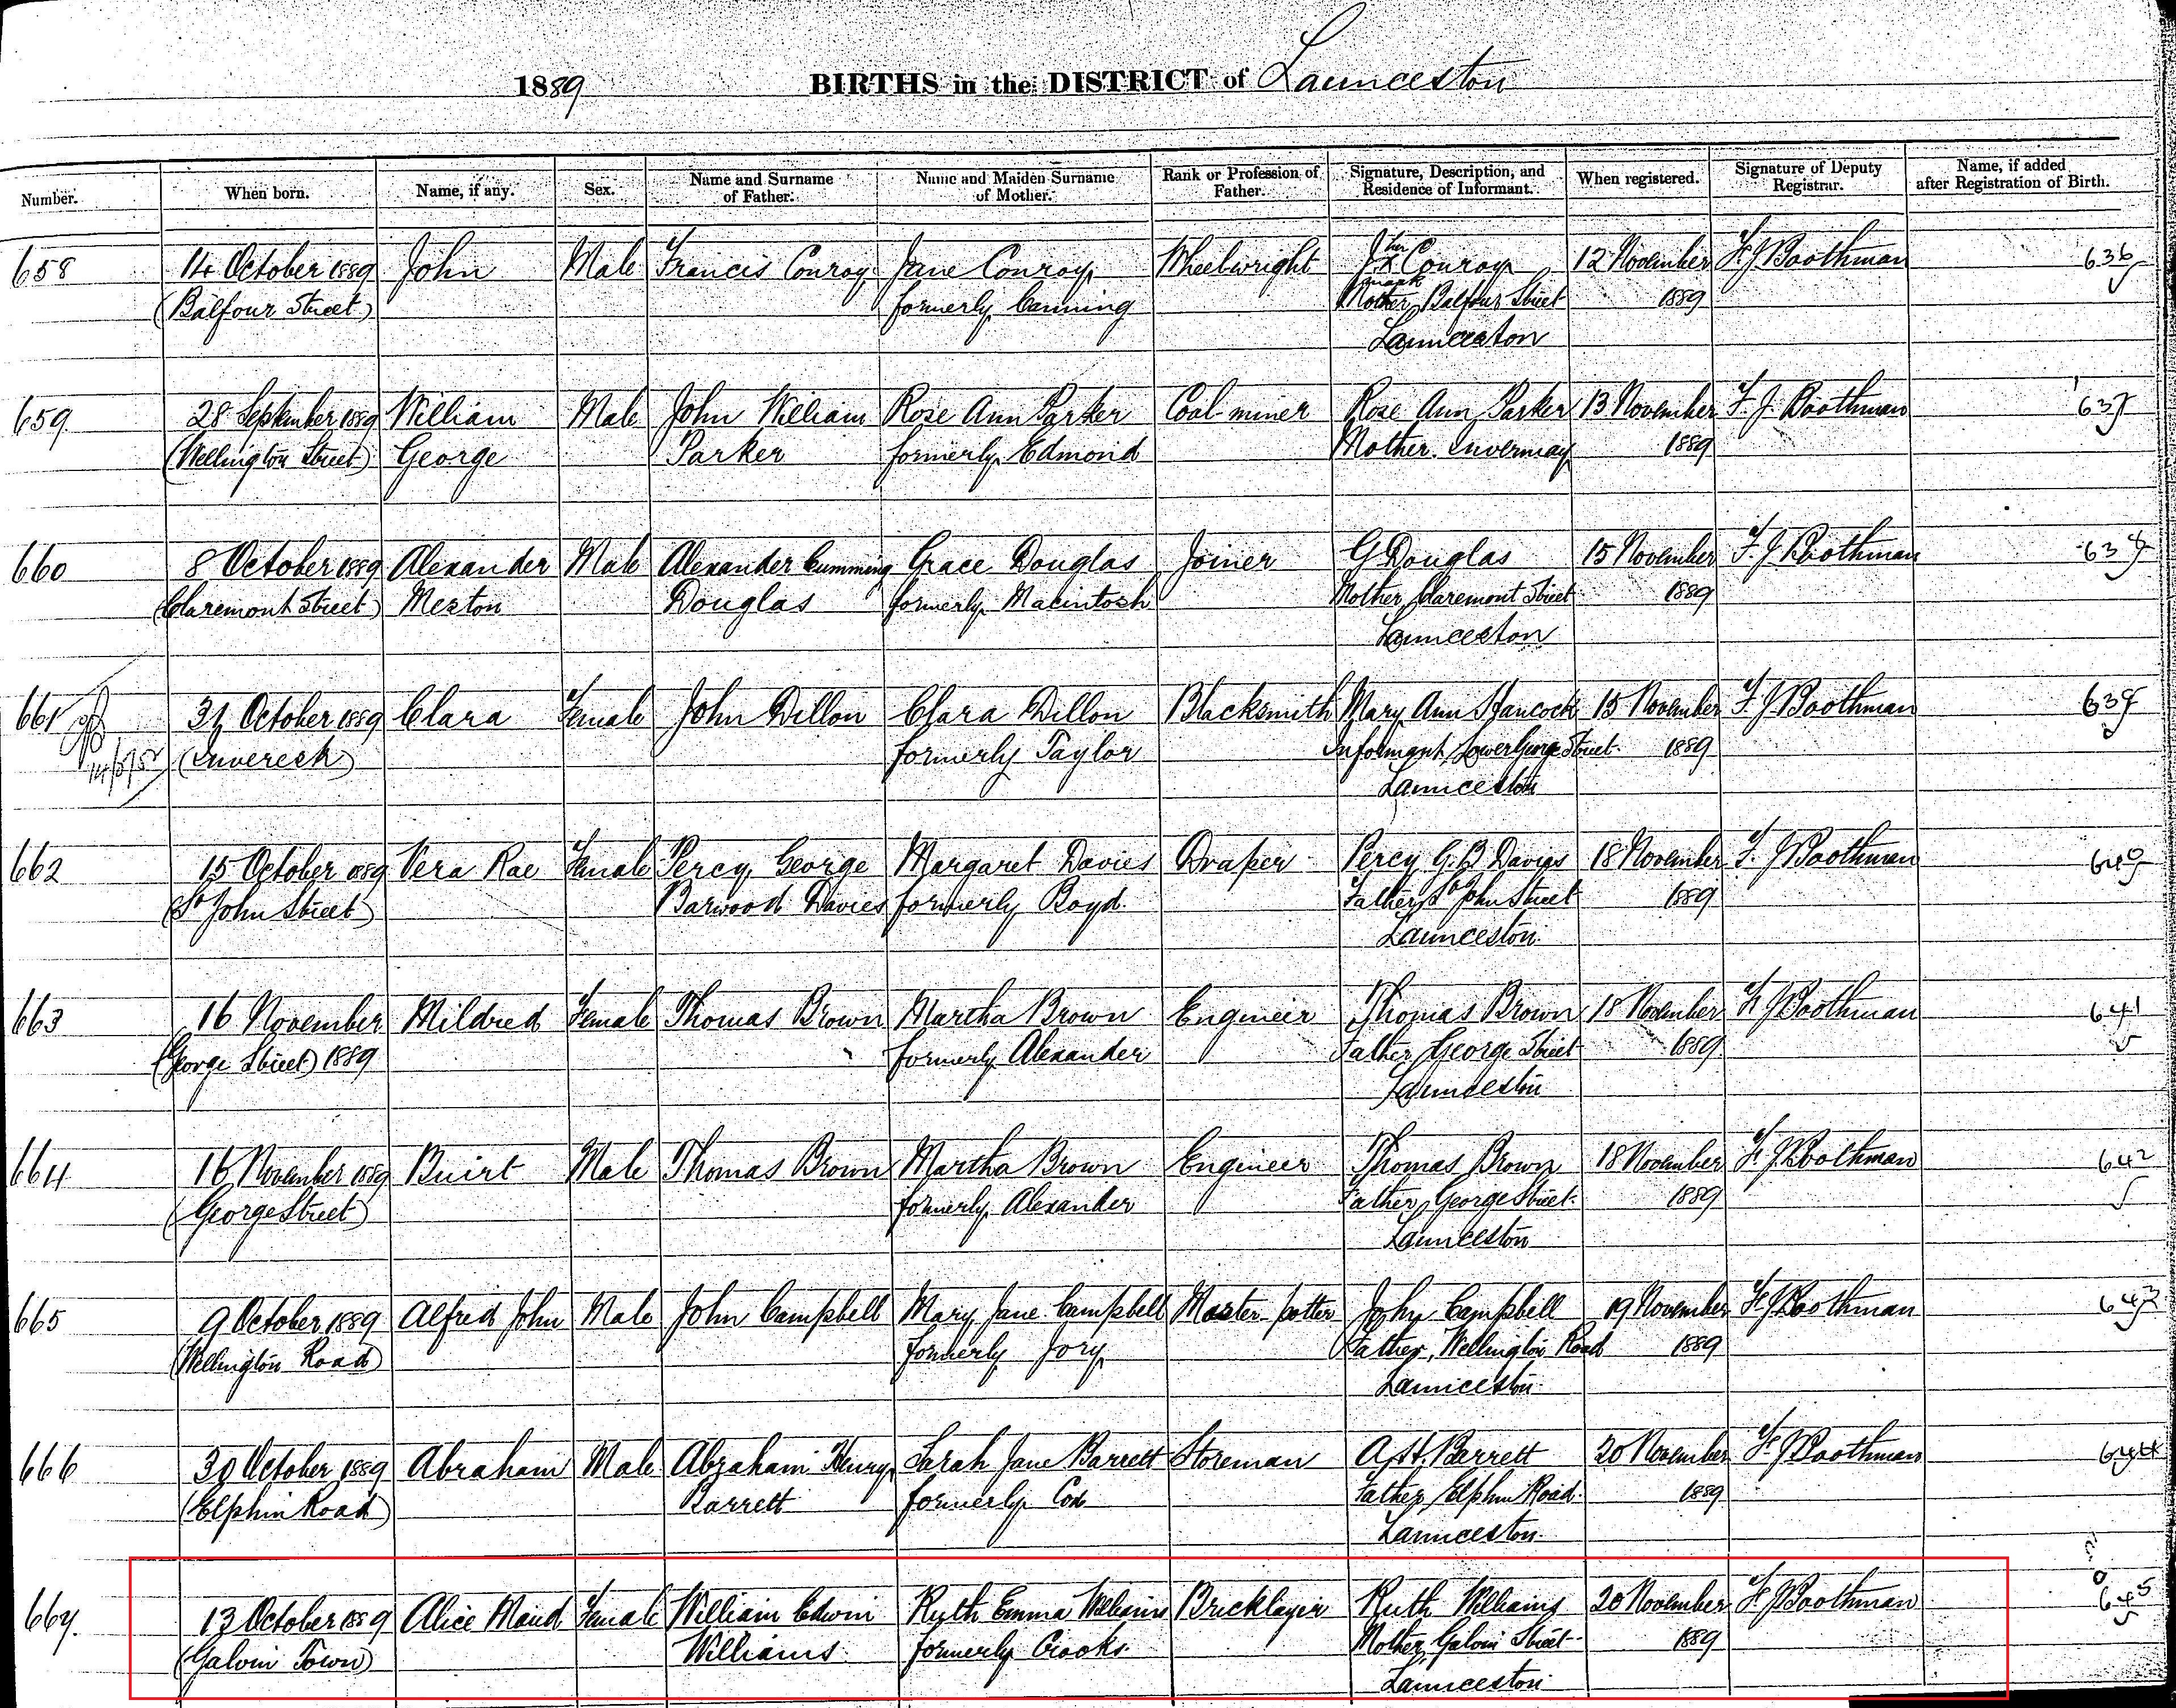 1889 BIRTHS in the DISTRICT of Launceston
Number. When born. Name, if any. Sex. Name and Surname of Father. Name and Maiden Surname of Mother. Rank or Profession of Father. Signature, Description, and Residence of Informant. When registered. Signature of Deputy Registrar. Name, if added after Registration of Birth.
658 14 October 1889 John Male Francis Conroy Jane Conroy Wheelwright J. her x Conroy 12 November F. J Boothman 636
(Balfour Street) formerly Canning mark Mother, Balfour Street 1889
Launceston
659 28 September 1889 William Male John William Rose Ann Parker Coal miner Rose Ann Parker 13 November F. J. Boothman 637
(Wellington Street) George Parker formerly Edmond Mother. Invermay 1889
660 8 October 1889 Alexander Male Alexander Cumming Grace Douglas Joiner G Douglas 15 November F. J Boothman 638
(Claremont Street) Meston Douglas formerly Macintosh Mother, Claremont Street 1889
Launceston
661 31 October 1889 Clara Female John Dillon Clara Dillon Blacksmith Mary Ann Hancock 15 November F. J Boothman 639
(Inveresk) formerly Taylor Informant, Lower George Street 1889
Launceston
662 15 October 1889 Vera Rae Female Percy George Margaret Davies Draper Percy G. B Davies 18 November F. J Boothman 640
(St John Street) Barwood Davies formerly Boyd. Father, St John Street 1889
Launceston
663 16 November Mildred Female Thomas Brown Martha Brown Engineer Thomas Brown 18 November F. J Boothman 641
(George Street) 1889 formerly Alexander Father, George Street 1889
Launceston
664 16 November 1889 Buirt Male Thomas Brown Martha Brown Engineer Thomas Brown 18 November F. J Boothman 642
(George Street) formerly Alexander Father, George Street 1889
Launceston
665 9 October 1889 Alfred John Male John Campbell Mary Jane Campbell Master potter John Campbell 19 November F. J Boothman 643
(Wellington Road) formerly Jory Father, Wellington Road 1889
Launceston
666 30 October 1889 Abraham Male Abraham Henry Sarah Jane Barrett Storeman A. H. Barrett 20 November F. J Boothman 644
(Elphin Road) Barrett formerly Cox Father, Elphin Road 1889
Launceston
667. 13 October 1889 Alice Maud Female William Edwin Ruth Emma Williams Bricklayer Ruth Williams 20 November F. J Boothman 645
(Galvin Town) Williams formerly Crooks Mother, Galvin Street 1889
Launceston